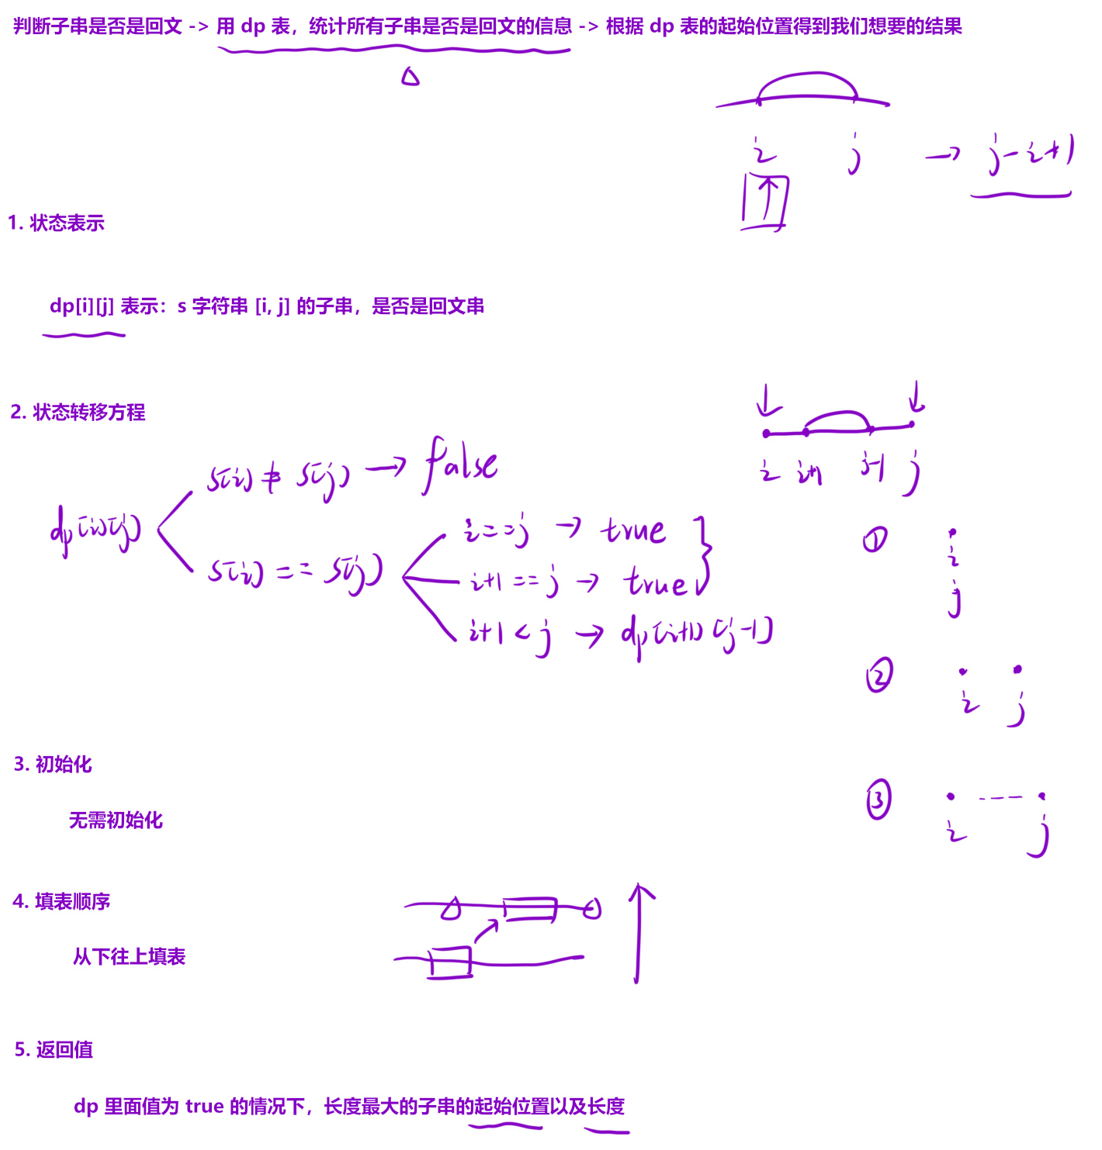 判断子串是否是回文 -> 用 dp 表，统计所有子串是否是回文的信息 -> 根据 dp 表的起始位置得到我们想要的结果
i j → j-i+1
1. 状态表示
dp[i][j] 表示：s 字符串 [i, j] 的子串，是否是回文串
2. 状态转移方程
i i+1 j-1 j
s[i] ≠ s[j] → false
dp[i][j]
s[i] == s[j]
i==j → true
i+1 == j → true
i+1 < j → dp[i+1][j-1]
① i j
② i j
③ i j
3. 初始化
无需初始化
4. 填表顺序
从下往上填表
5. 返回值
dp 里面值为 true 的情况下，长度最大的子串的起始位置以及长度